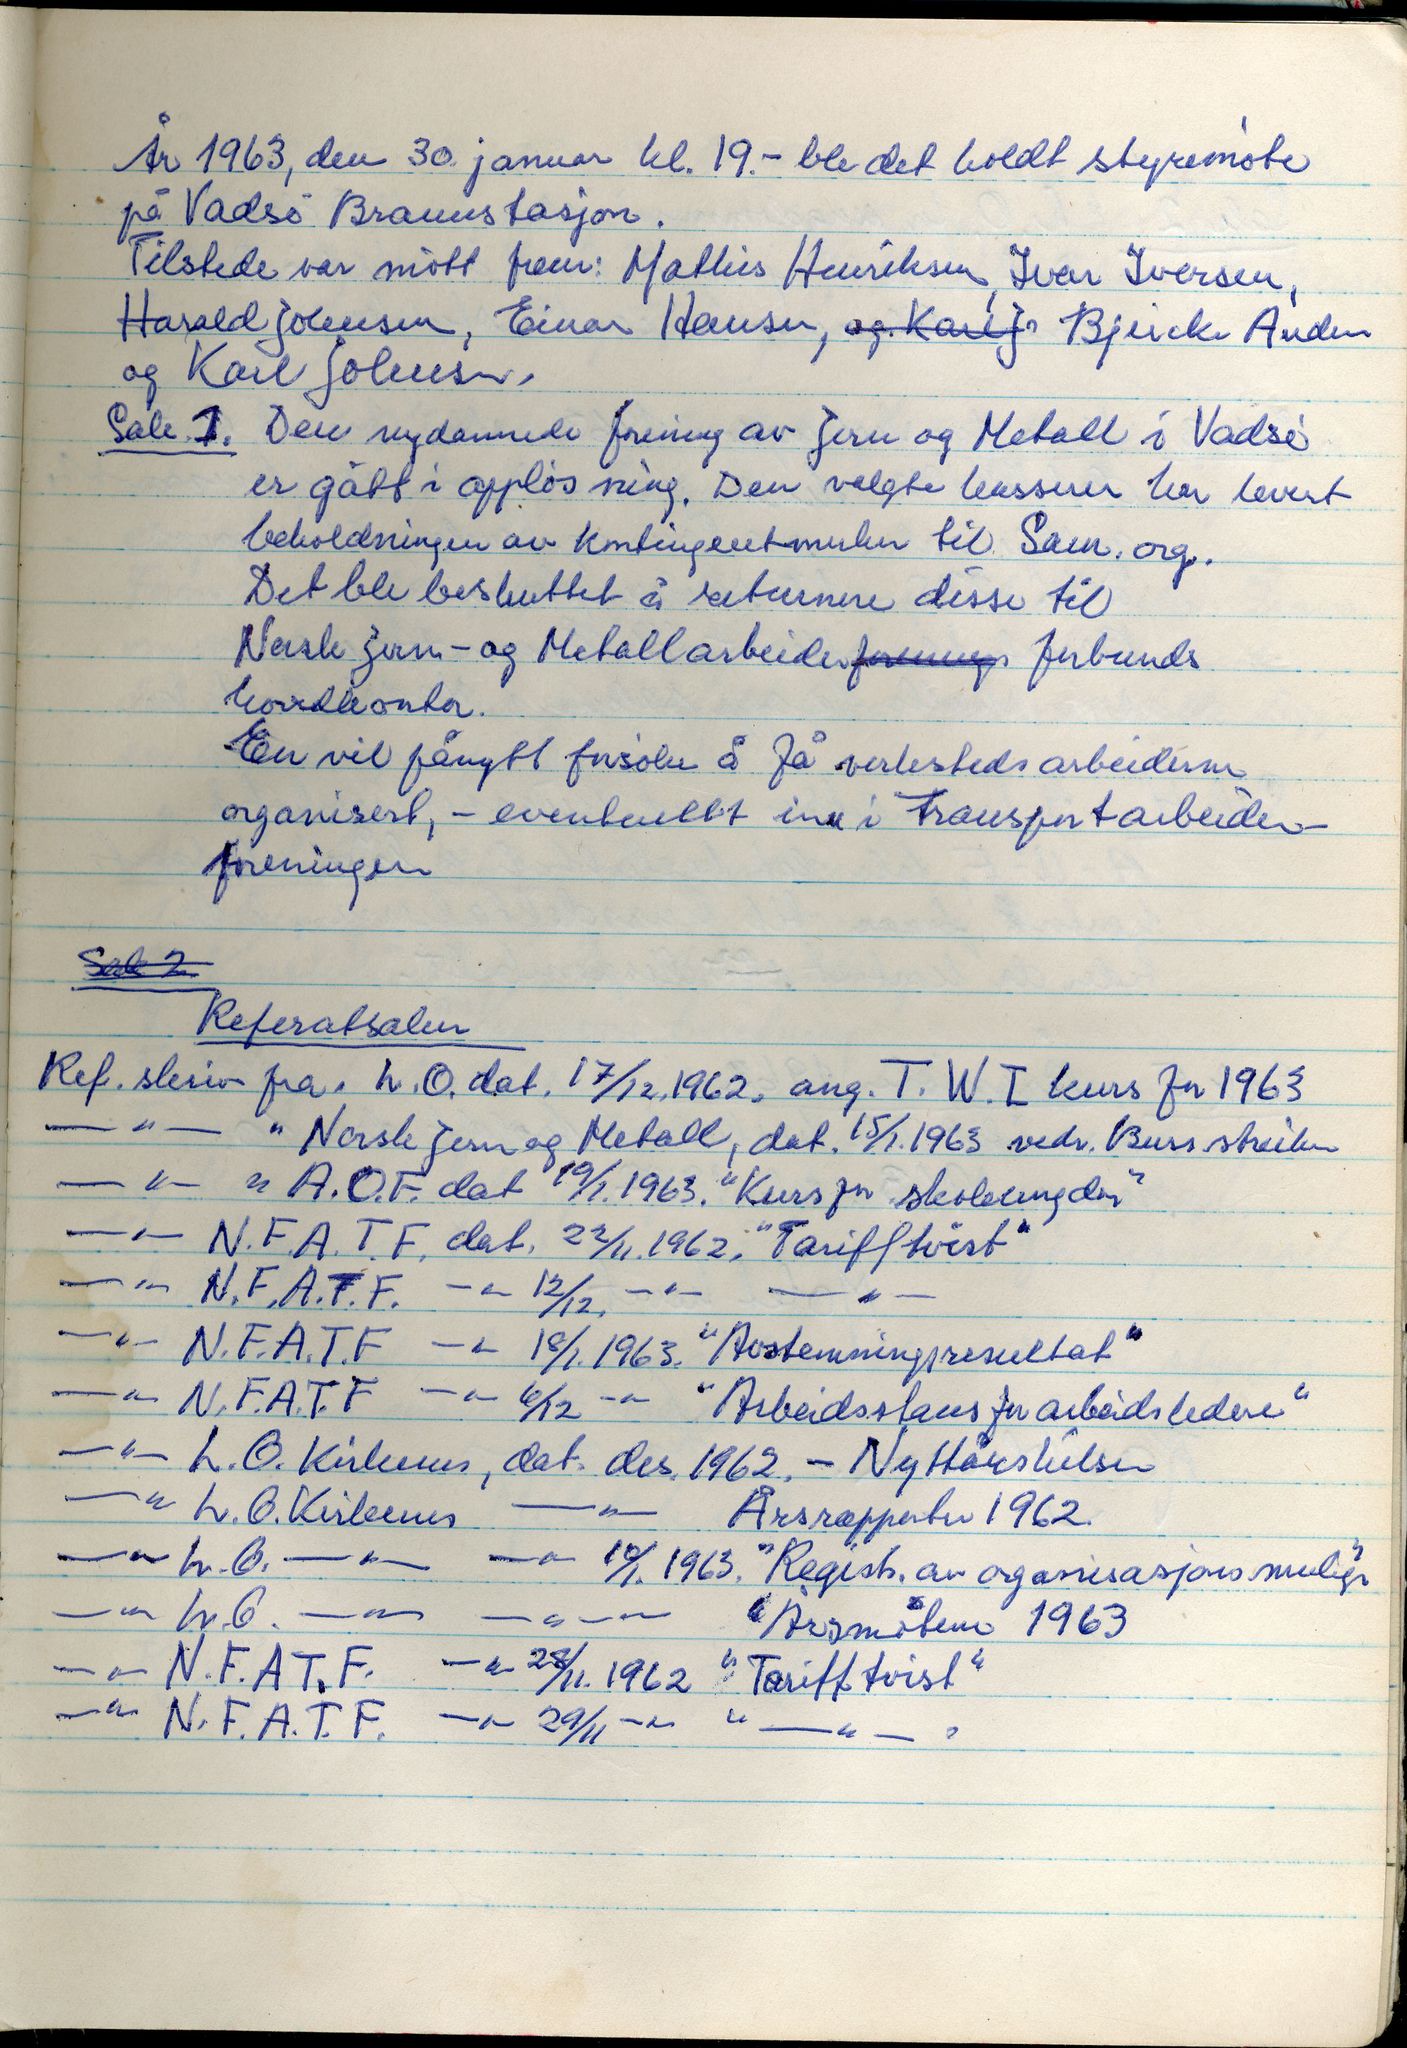 År 1963, den 30. januar kl. 19.- ble det holdt styremöte
på Vadsö Brannstasjon.
Tilstede var mött frem: Mathis Henriksen, Ivar Iversen,
Harald Johnsen, Einar Hansen, og Karl J Bjericke Anden
og Karl Johnsen.
Sak 1. Den nydannede forening av Jern og Metall i Vadsö
er gått i opplösning. Den valgte kasserer har levert
beholdningen av kontingentmerker til Sam. org.
Det ble besluttet å returnere disse til
Norsk Jern- og Metallarbeiderforenings forbunds
hovedkontor.
En vil pånytt forsöke å få verkstedsarbeiderne
organisert, - eventuellt inn i Transportarbeider-
foreningen
Sak 2
Referatsaker
Ref. skriv fra. L.O. dat. 17/12.1962. ang. T.W.I kurs for 1963
— " — " Norsk Jern og Metall, dat. 15/1.1963 vedr. Buss streiken
— " — " A.O.F. dat 19/1.1963. "Kurs for skoleungdom"
— " — N.F.A.T.F. dat. 22/11.1962. "Tarifftvist"
— " — N.F.A.T.F. — " — 12/12. — " — — " —
— " — N.F.A.T.F — " — 18/1.1963. "Avstemningsresultat"
— " — N.F.A.T.F — " — 6/12 — " — "Arbeidsstans for arbeidsledere"
— " — L.O. Kirkenes, dat. des. 1962. - Nyttårshilsen
— " — L.O. Kirkenes — " — Årsrapporter 1962.
— " — L.O. — " — — " — 10/1.1963. "Registr. av organisasjonsmulig
— " — L.O. — " — — " — " — "Årsmötene 1963
— " — N.F.A.T.F. — " — 28/11.1962 "Tarifftvist"
— " — N.F.A.T.F. — " — 29/11 — " — " — " — "